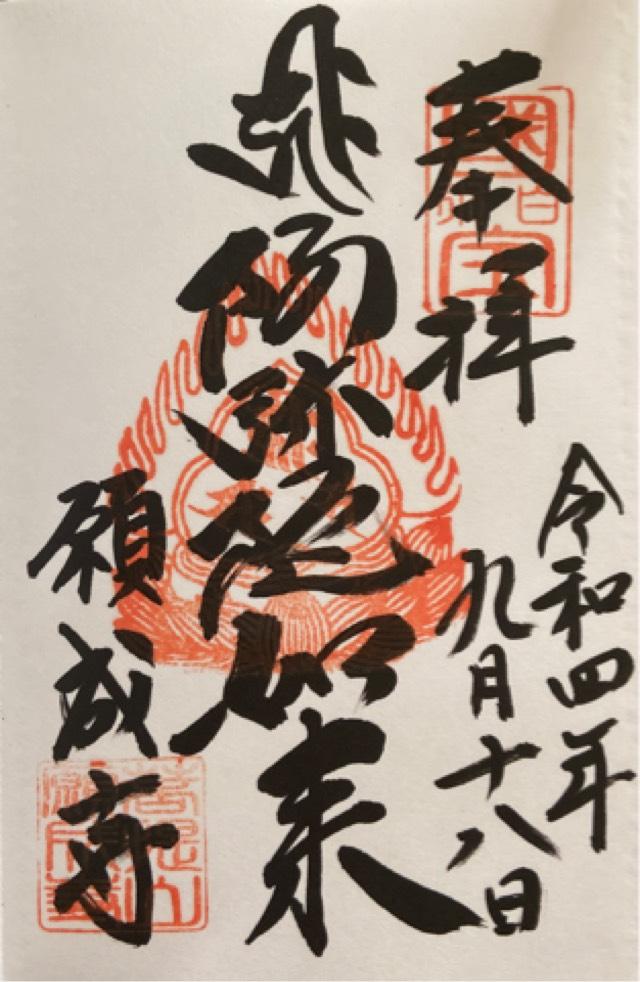 奉拝
令和四年
九月十八日
阿弥陀如来
願成寺